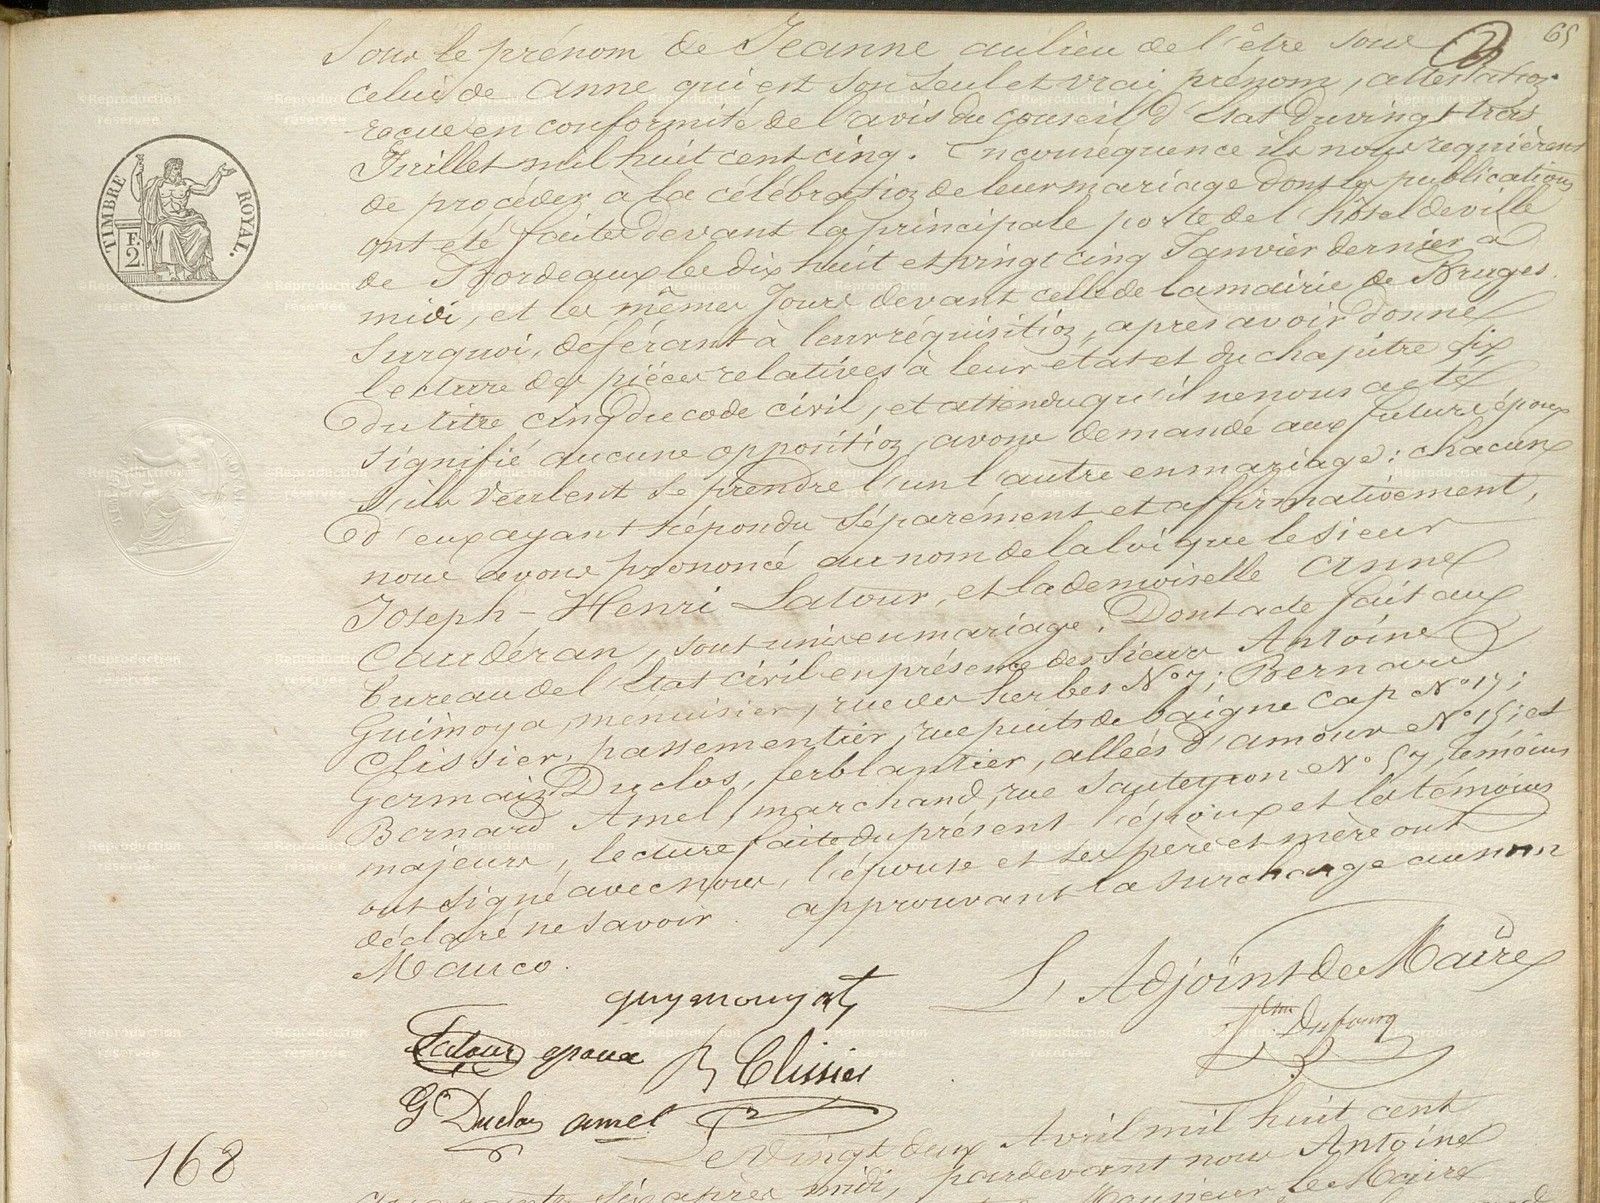 65
Sous le prénom de Jeanne au lieu de l'être sous
celui de Anne qui est son seul et vrai prénom, attestation
reçue en conformité de l'avis du Conseil d'Etat du vingt trois
Juillet mil huit cent cinq. En conséquence ils nous requièrent
de procéder à la célébration de leur mariage dont les publications
ont été faites devant la principale porte de l'hôtel de ville
de Bordeaux les dix huit et vingt cinq Janvier dernier à
midi, et les mêmes Jours devant celle de la mairie de Bruges.
Surquoi, déférant à leur réquisition, après avoir donné
lecture des pièces relatives à leur état et du chapitre six
du titre cinq du code civil, et attendu qu'il ne nous a été
signifié aucune opposition, avons demandé aux futurs époux
s'ils veulent se prendre l'un l'autre en mariage; chacun
d'eux ayant répondu séparément et affirmativement,
nous avons prononcé au nom de la loi que le sieur
Joseph-Henri Latour, et la demoiselle Anne
Caudéran, sont unis en mariage. Dont acte fait au
bureau de l'Etat civil en présence des sieurs Antoine
Guimoya, menuisier, rue des herbes N° 7; Bernard
Clissier, passementier, rue puits de baigne cap N° 17;
Germain Duclos, ferblantier, allées d'amour N° 15; et
Bernard Amel, marchand, rue Sauteyron N° 57, témoins
majeurs, lecture faite du présent l'époux et les témoins
ont signé avec nous, l'épouse et ses père et mère ont
déclaré ne savoir. approuvant la surcharge au nom
Mauco.
L'Adjoint de Maire
guymouyat
Latour epoux B Clissier
Dufourq
G Duclos amel
168
Le Vingt deux Avril mil huit cent
quarante six après midi, pardevant nous Antoine
Monsieur le Maire
TIMBRE ROYAL.
F. 2.
©Reproduction réservée